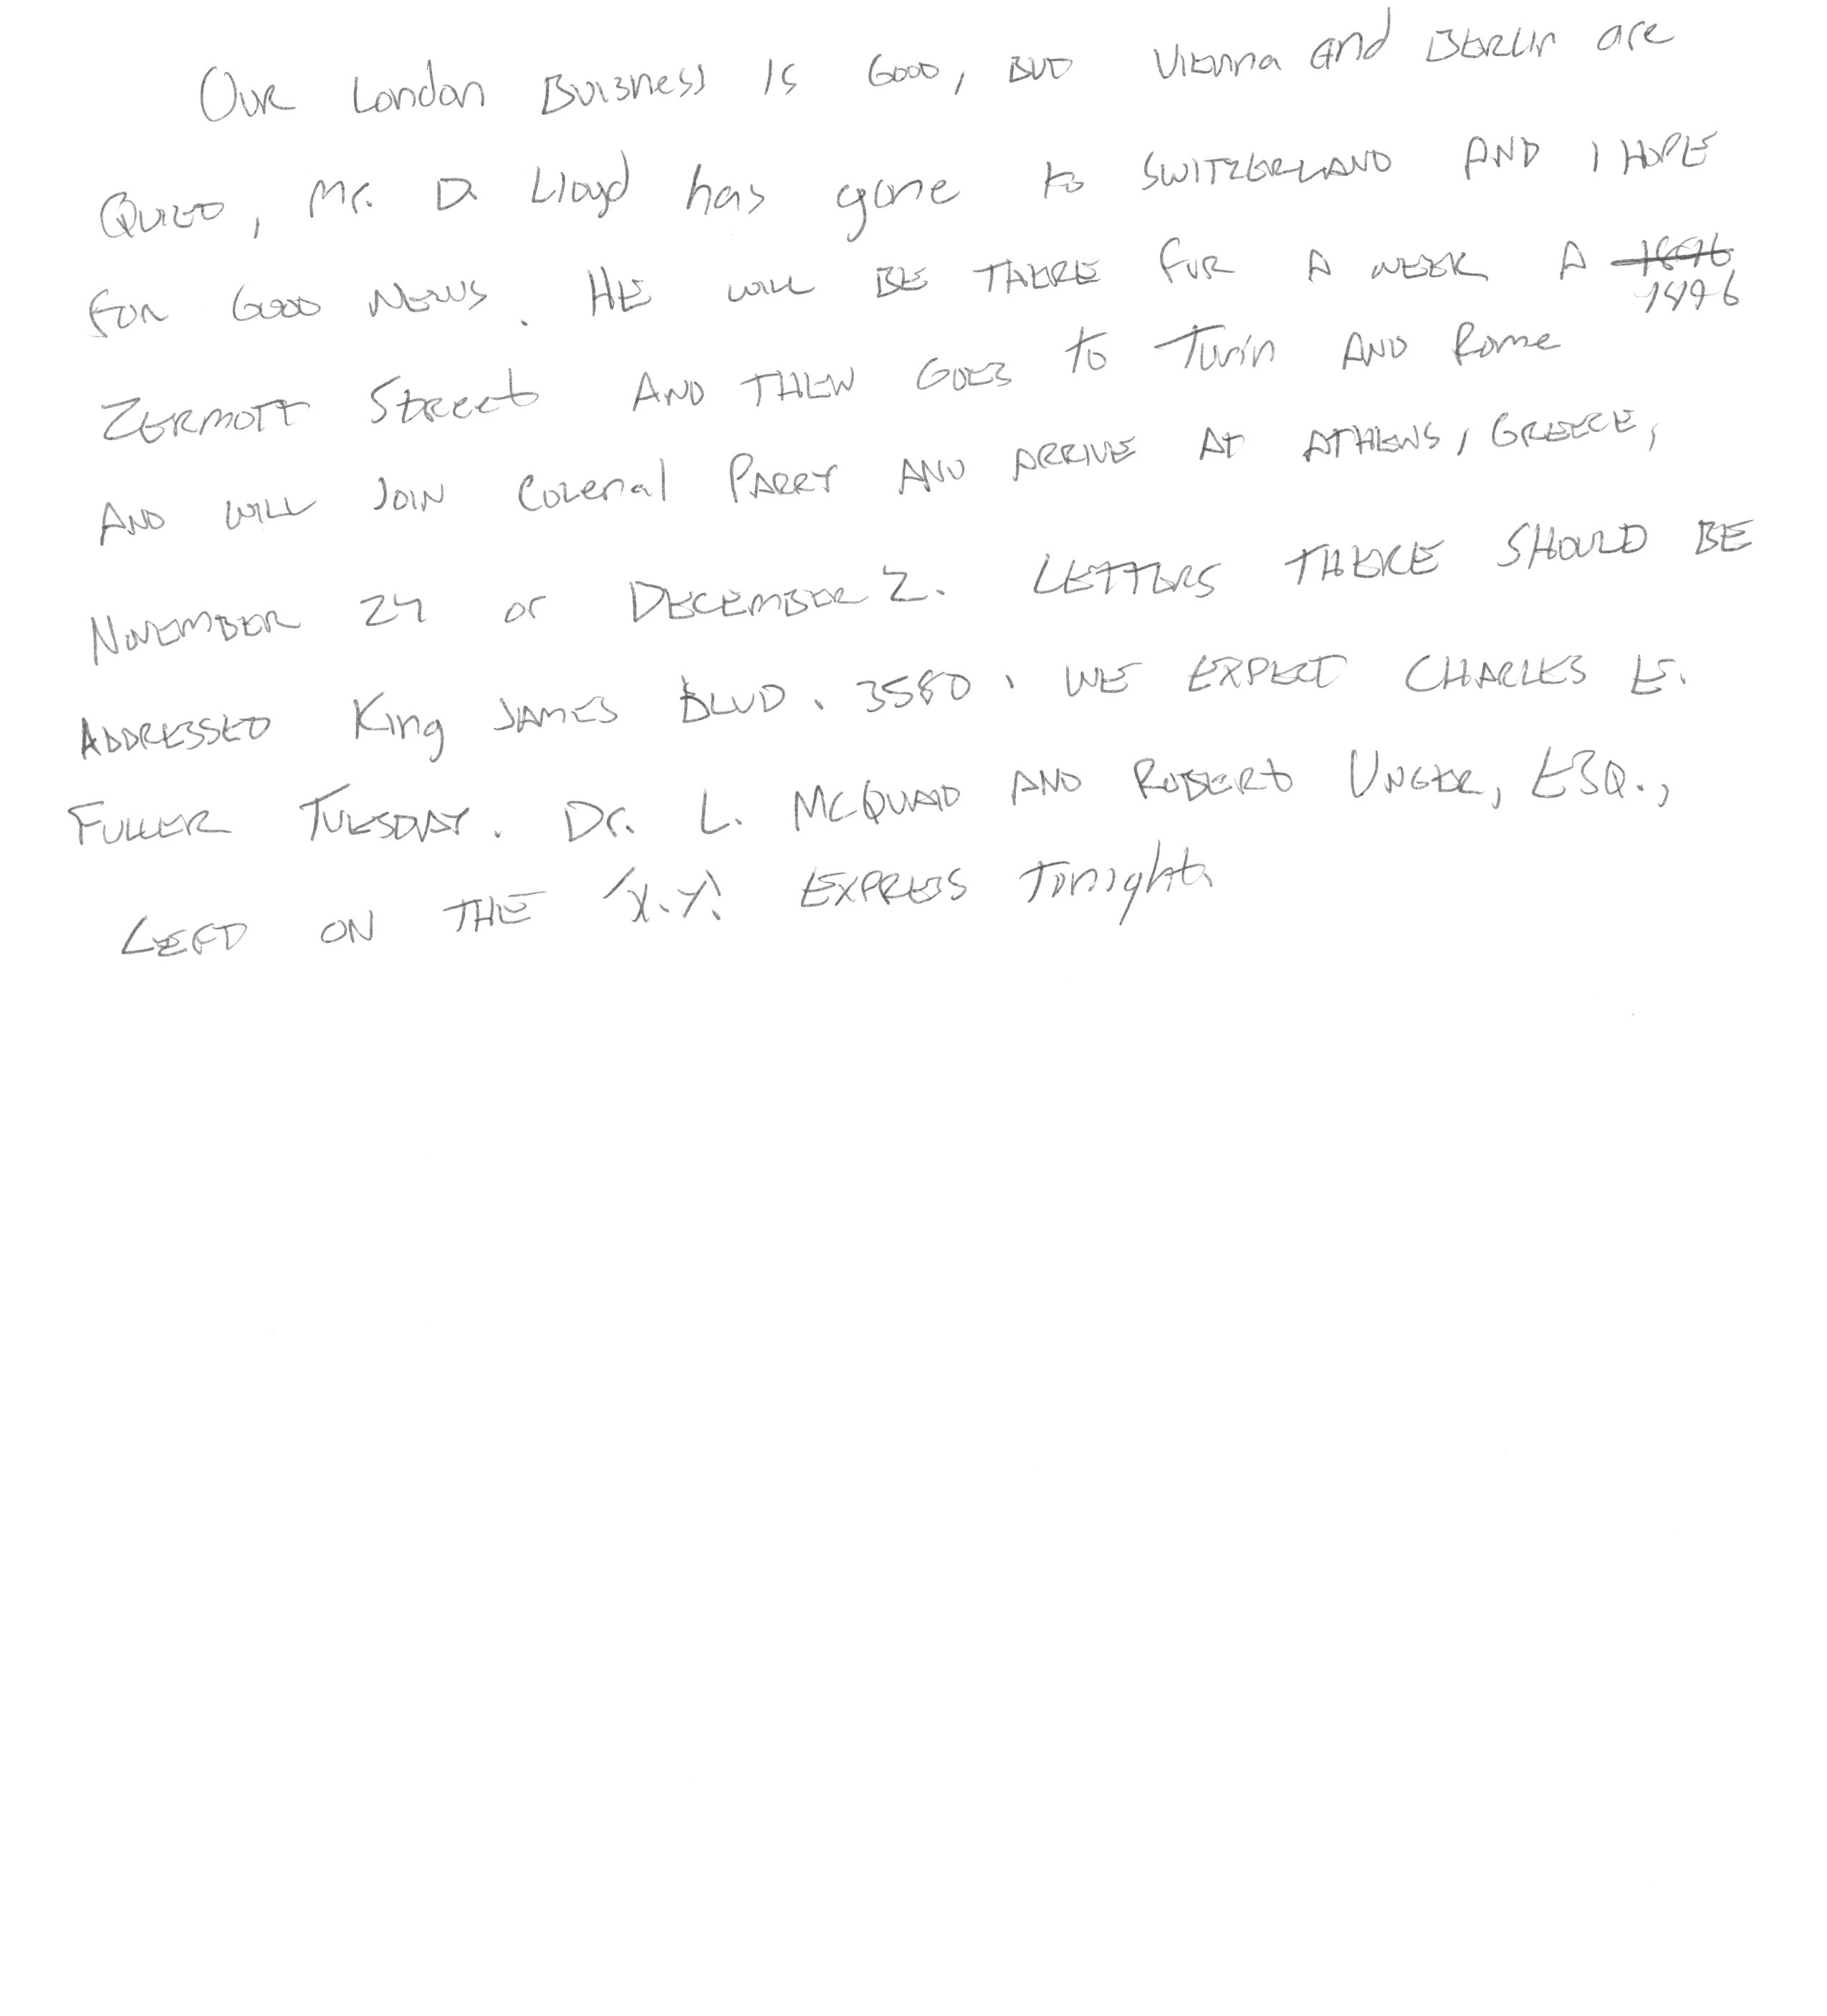 Our London Buisness is Good, but Vienna and Berlin are
Quiet, Mr. D. Lloyd has gone to SWITZERLAND AND I HOPE
FOR GOOD NEWS. HE WILL BE THERE FOR A WEEK A
1896
ZERMOTT Street AND THEN GOES to Turin AND Rome
AND WILL JOIN Colenal PARRY AND ARRIVE AT ATHENS, GREECE,
NOVEMBER 24 or DECEMBER 2. LETTERS THERE SHOULD BE
ADDRESSED King JAMES BLVD. 3580. WE EXPECT CHARLES E.
FULLER TUESDAY. Dr. L. MCQUAID AND ROBERT UNGER, ESQ.,
LEFT ON THE 'X.Y.' EXPRESS Tonight.